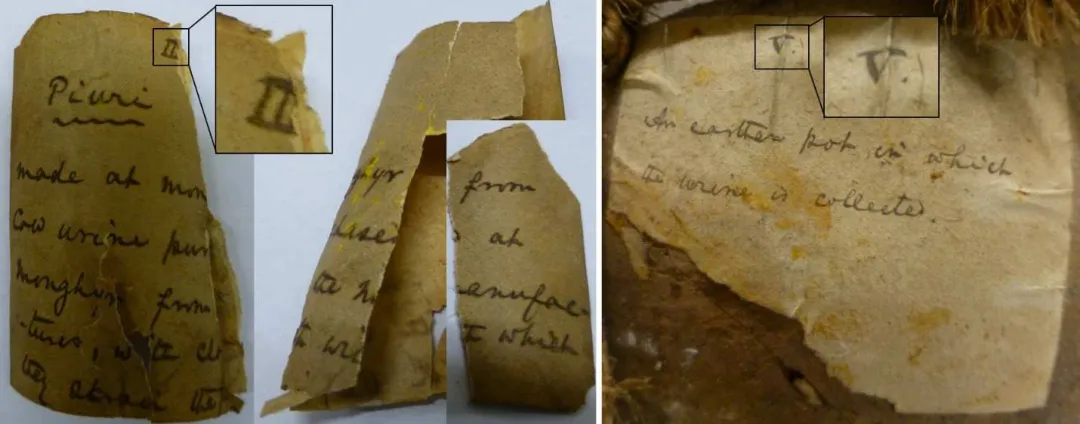 II
II
Piuri
made at mon
Cow urine pur
Monghyr from
-tures, with clo
they
from
at
the m
anufac-
which
V.
V.
An earthen pot in which
the urine is collected.